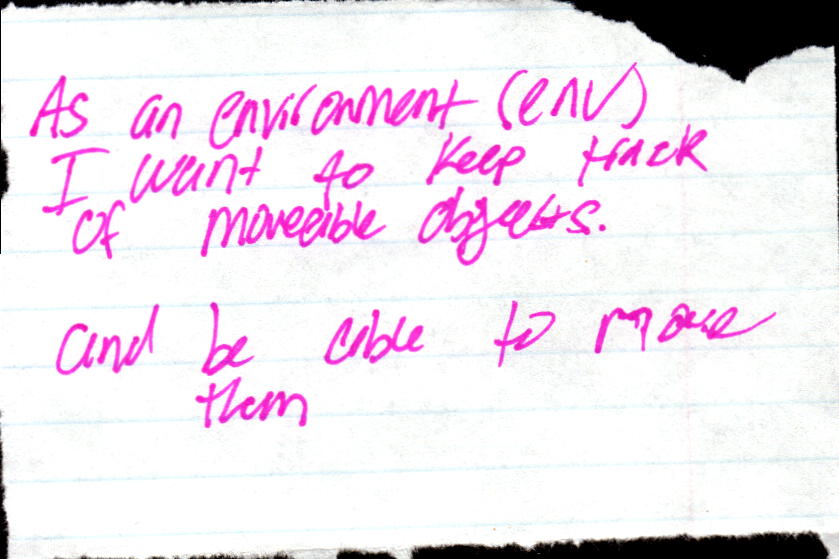 As an environment (env)
I want to keep track
of moveable objects.
and be able to move
them